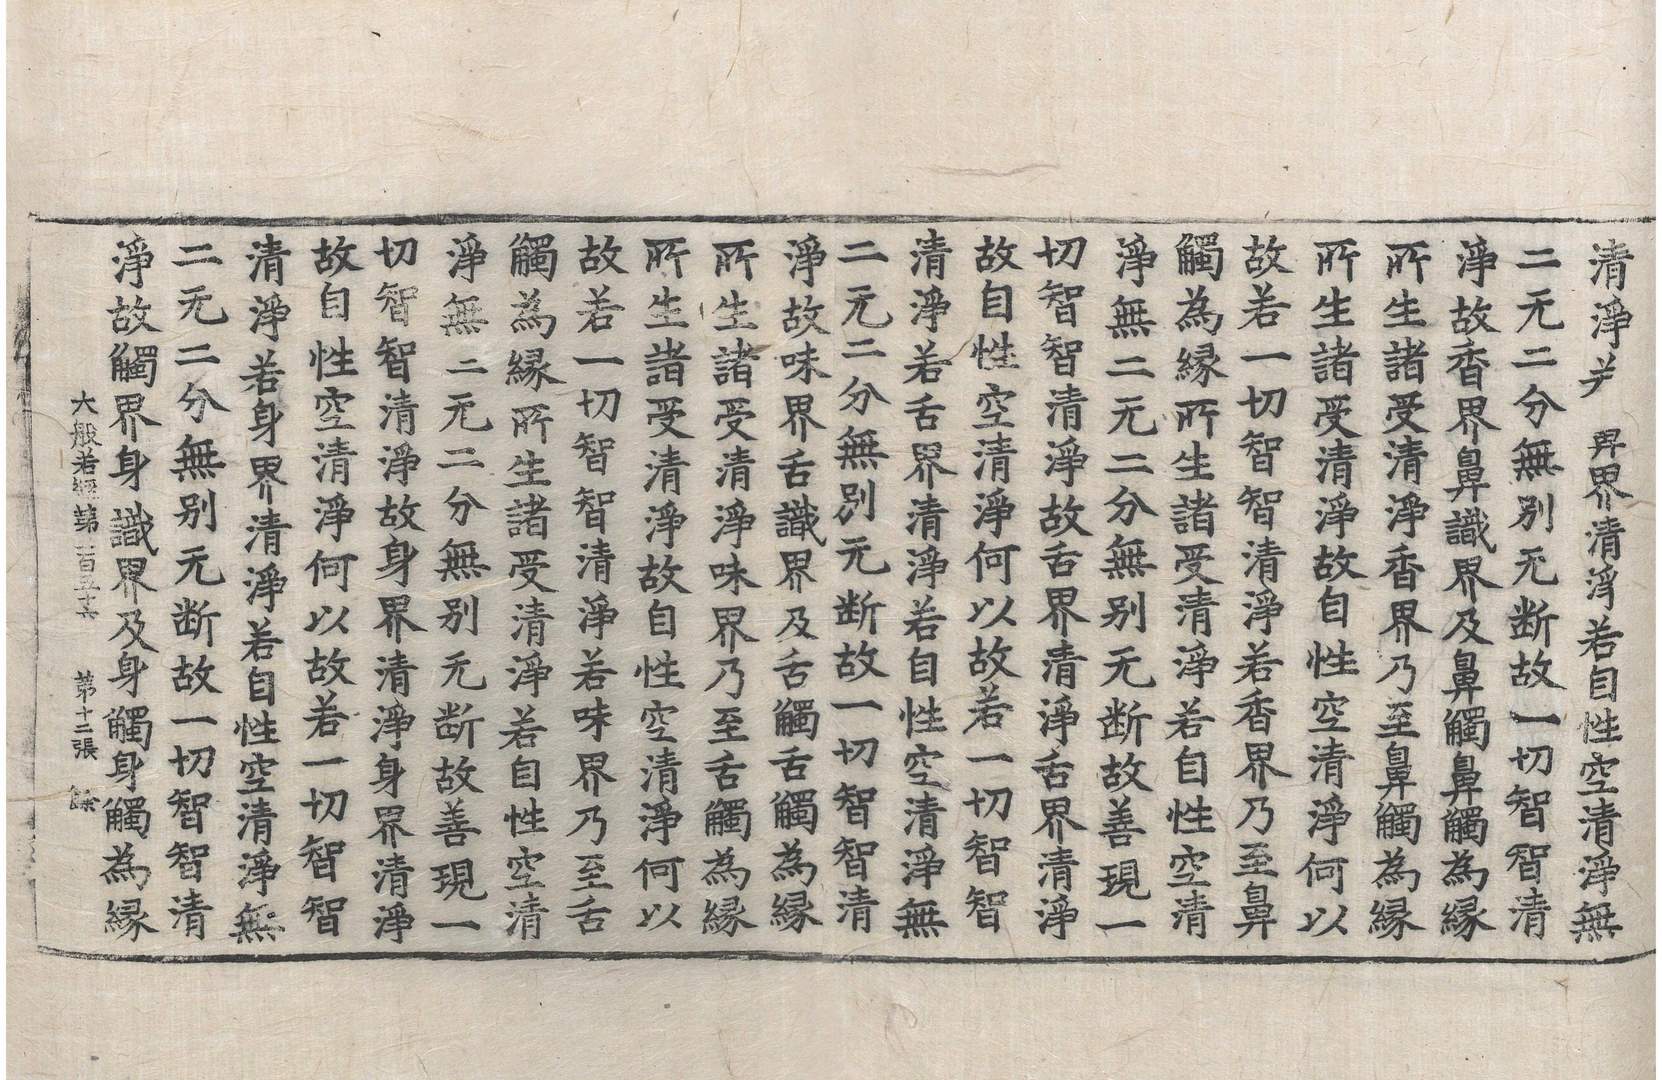 清淨若鼻界清淨若自性空清淨無
二无二分無别无断故一切智智清
淨故香界鼻識界及鼻觸鼻觸為縁
所生諸受清淨香界乃至鼻觸為縁
所生諸受清淨故自性空清淨何以
故若一切智智清淨若香界乃至鼻
觸為縁所生諸受清淨若自性空清
淨無二无二分無别无断故善現一
切智智清淨故舌界清淨舌界清淨
故自性空清淨何以故若一切智智
清淨若舌界清淨若自性空清淨無
二无二分無别无断故一切智智清
淨故味界舌識界及舌觸舌觸為縁
所生諸受清淨味界乃至舌觸為縁
所生諸受清淨故自性空清淨何以
故若一切智智清淨若味界乃至舌
觸為縁所生諸受清淨若自性空清
淨無二无二分無别无断故善現一
切智智清淨故身界清淨身界清淨
故自性空清淨何以故若一切智智
清淨若身界清淨若自性空清淨無
二无二分無别无断故一切智智清
淨故觸界身識界及身觸身觸為縁
大般若經第二百五十六 第十二張 餘